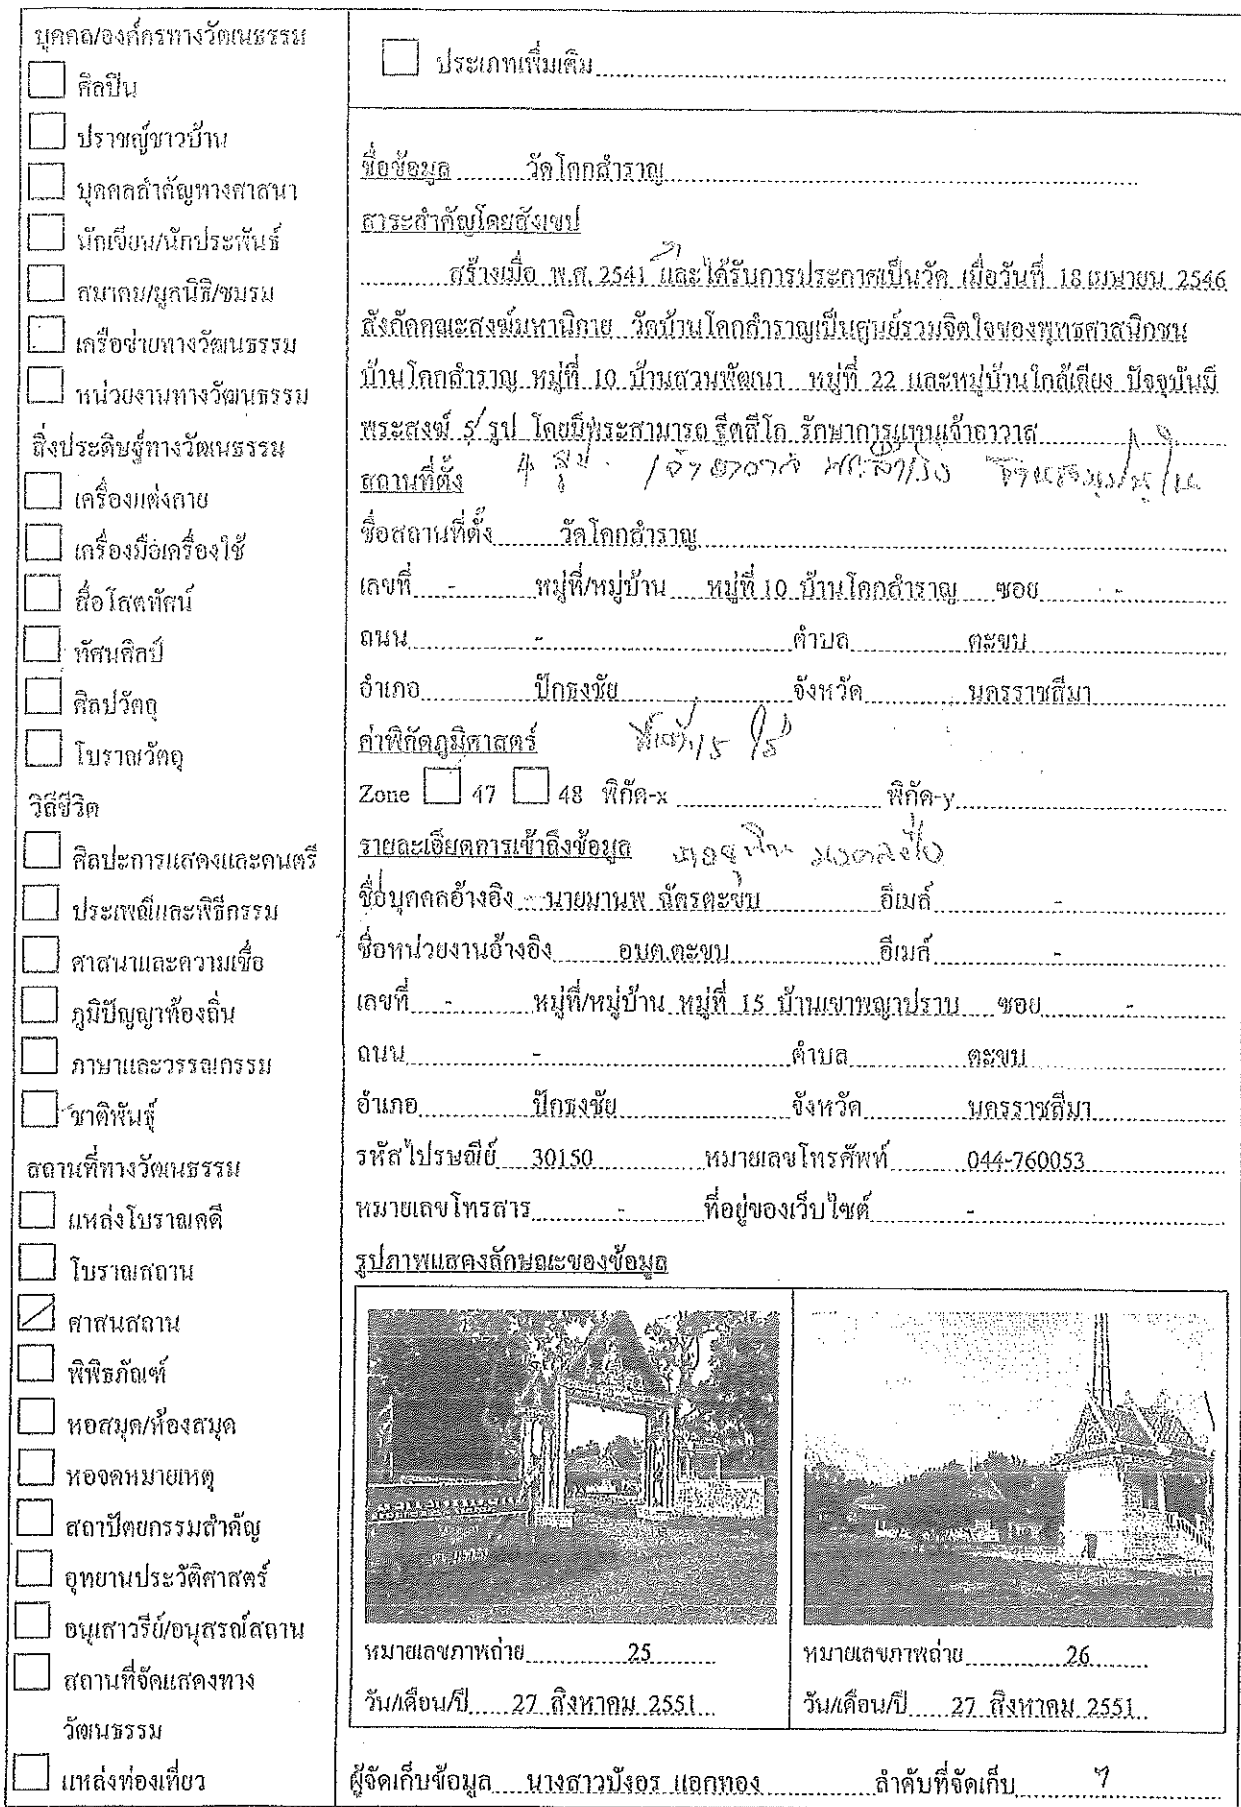 บุคคล/องค์กรทางวัฒนธรรม
ศิลปิน
ปราชญ์ชาวบ้าน
บุคคลสำคัญทางศาสนา
นักเขียน/นักประพันธ์
สมาคม/มูลนิธิ/ชมรม
เครือข่ายทางวัฒนธรรม
หน่วยงานทางวัฒนธรรม
สิ่งประดิษฐ์ทางวัฒนธรรม
เครื่องแต่งกาย
เครื่องมือเครื่องใช้
สื่อโสตทัศน์
ทัศนศิลป์
ศิลปวัตถุ
โบราณวัตถุ
วิถีชีวิต
ศิลปะการแสดงและดนตรี
ประเพณีและพิธีกรรม
ศาสนาและความเชื่อ
ภูมิปัญญาท้องถิ่น
ภาษาและวรรณกรรม
ชาติพันธุ์
สถานที่ทางวัฒนธรรม
แหล่งโบราณคดี
โบราณสถาน
ศาสนสถาน
พิพิธภัณฑ์
หอสมุด/ห้องสมุด
หอจดหมายเหตุ
สถาปัตยกรรมสำคัญ
อุทยานประวัติศาสตร์
อนุเสาวรีย์/อนุสรณ์สถาน
สถานที่จัดแสดงทาง
วัฒนธรรม
แหล่งท่องเที่ยว
ประเภทเพิ่มเติม
ชื่อข้อมูล วัดโคกสำราญ
สาระสำคัญโดยสังเขป
สร้างเมื่อ พ.ศ. 2541 และได้รับการประกาศเป็นวัด เมื่อวันที่ 18 เมษายน 2546
สังกัดคณะสงฆ์มหานิกาย วัดบ้านโคกสำราญเป็นศูนย์รวมจิตใจของพุทธศาสนิกชน
บ้านโคกสำราญ หมู่ที่ 10 บ้านสวนพัฒนา หมู่ที่ 22 และหมู่บ้านใกล้เคียง ปัจจุบันมี
พระสงฆ์ 5 รูป โดยมีพระสามารถ ฐิตสีโล รักษาการแทนเจ้าอาวาส
4 รูป. เจ้าอาวาส
สถานที่ตั้ง
ชื่อสถานที่ตั้ง วัดโคกสำราญ
เลขที่ - หมู่ที่/หมู่บ้าน หมู่ที่ 10 บ้านโคกสำราญ ซอย -
ถนน - ตำบล ตะขบ
อำเภอ ปักธงชัย จังหวัด นครราชสีมา
ค่าพิกัดภูมิศาสตร์ 15 ไร่
Zone 47 48 พิกัด-x พิกัด-y
รายละเอียดการเข้าถึงข้อมูล
ชื่อบุคคลอ้างอิง นายมานพ ฉัตรตะขบ อีเมล์ -
ชื่อหน่วยงานอ้างอิง อบต.ตะขบ อีเมล์ -
เลขที่ - หมู่ที่/หมู่บ้าน หมู่ที่ 15 บ้านเขาพญาปราบ ซอย -
ถนน - ตำบล ตะขบ
อำเภอ ปักธงชัย จังหวัด นครราชสีมา
รหัสไปรษณีย์ 30150 หมายเลขโทรศัพท์ 044-760053
หมายเลขโทรสาร - ที่อยู่ของเว็บไซต์ -
รูปภาพแสดงลักษณะของข้อมูล
หมายเลขภาพถ่าย 25
วัน/เดือน/ปี 27 สิงหาคม 2551
หมายเลขภาพถ่าย 26
วัน/เดือน/ปี 27 สิงหาคม 2551
ผู้จัดเก็บข้อมูล นางสาวบังอร แอกทอง ลำดับที่จัดเก็บ 7